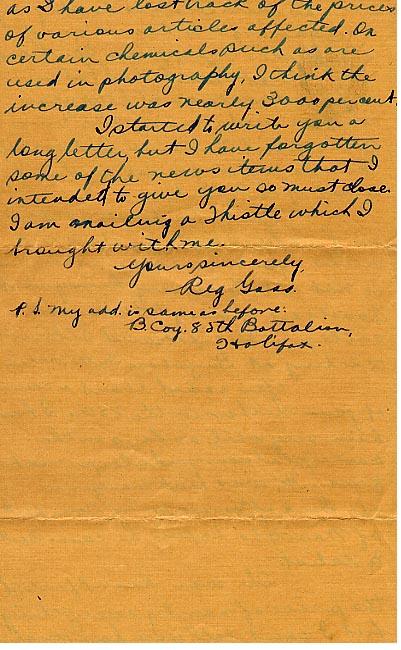 as I have lost track of the prices
of various articles affected. On
certain chemicals such as are
used in photography, I think the
increase was nearly 3000 percent.
I started to write you a
long letter, but I have forgotten
some of the news items that I
intended to give you so must close.
I am mailing a Thistle which I
brought with me.
Yours sincerely,
Reg Gass.
P.S. My add. is same as before:
B. Coy. 85th Battalion,
Halifax.